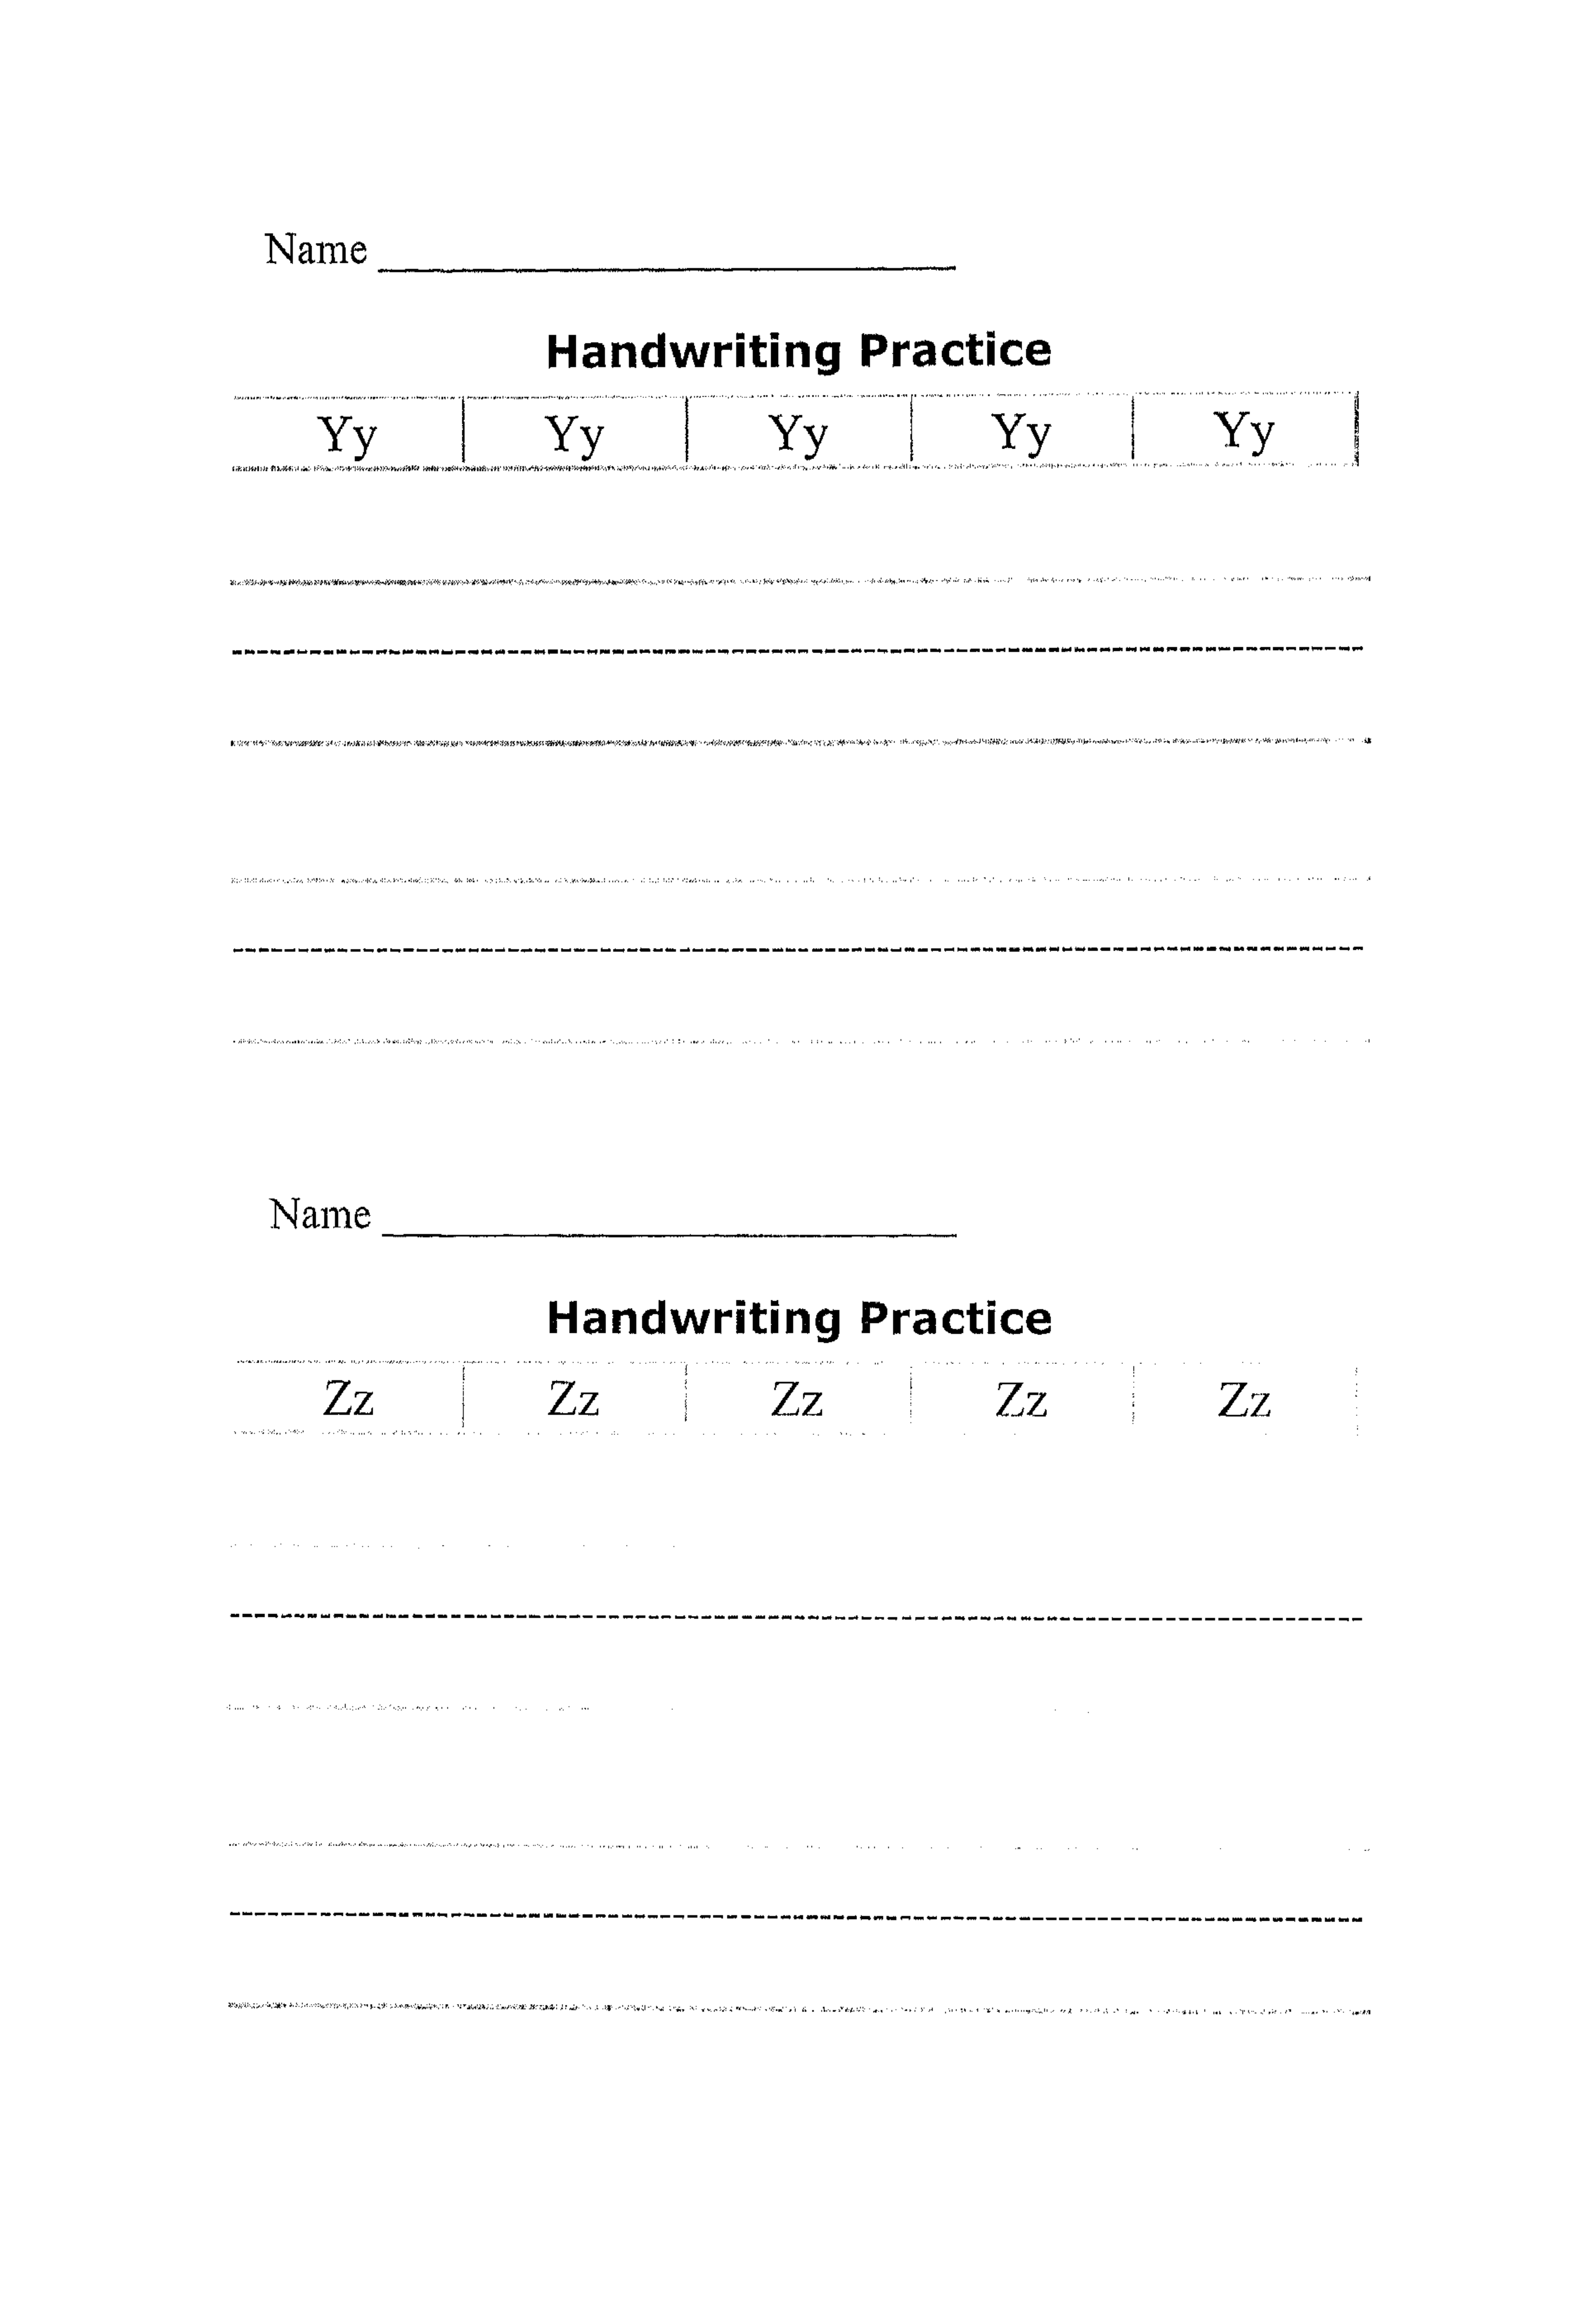 Name
Handwriting Practice
Yy Yy Yy Yy Yy
Name
Handwriting Practice
Zz Zz Zz Zz Zz